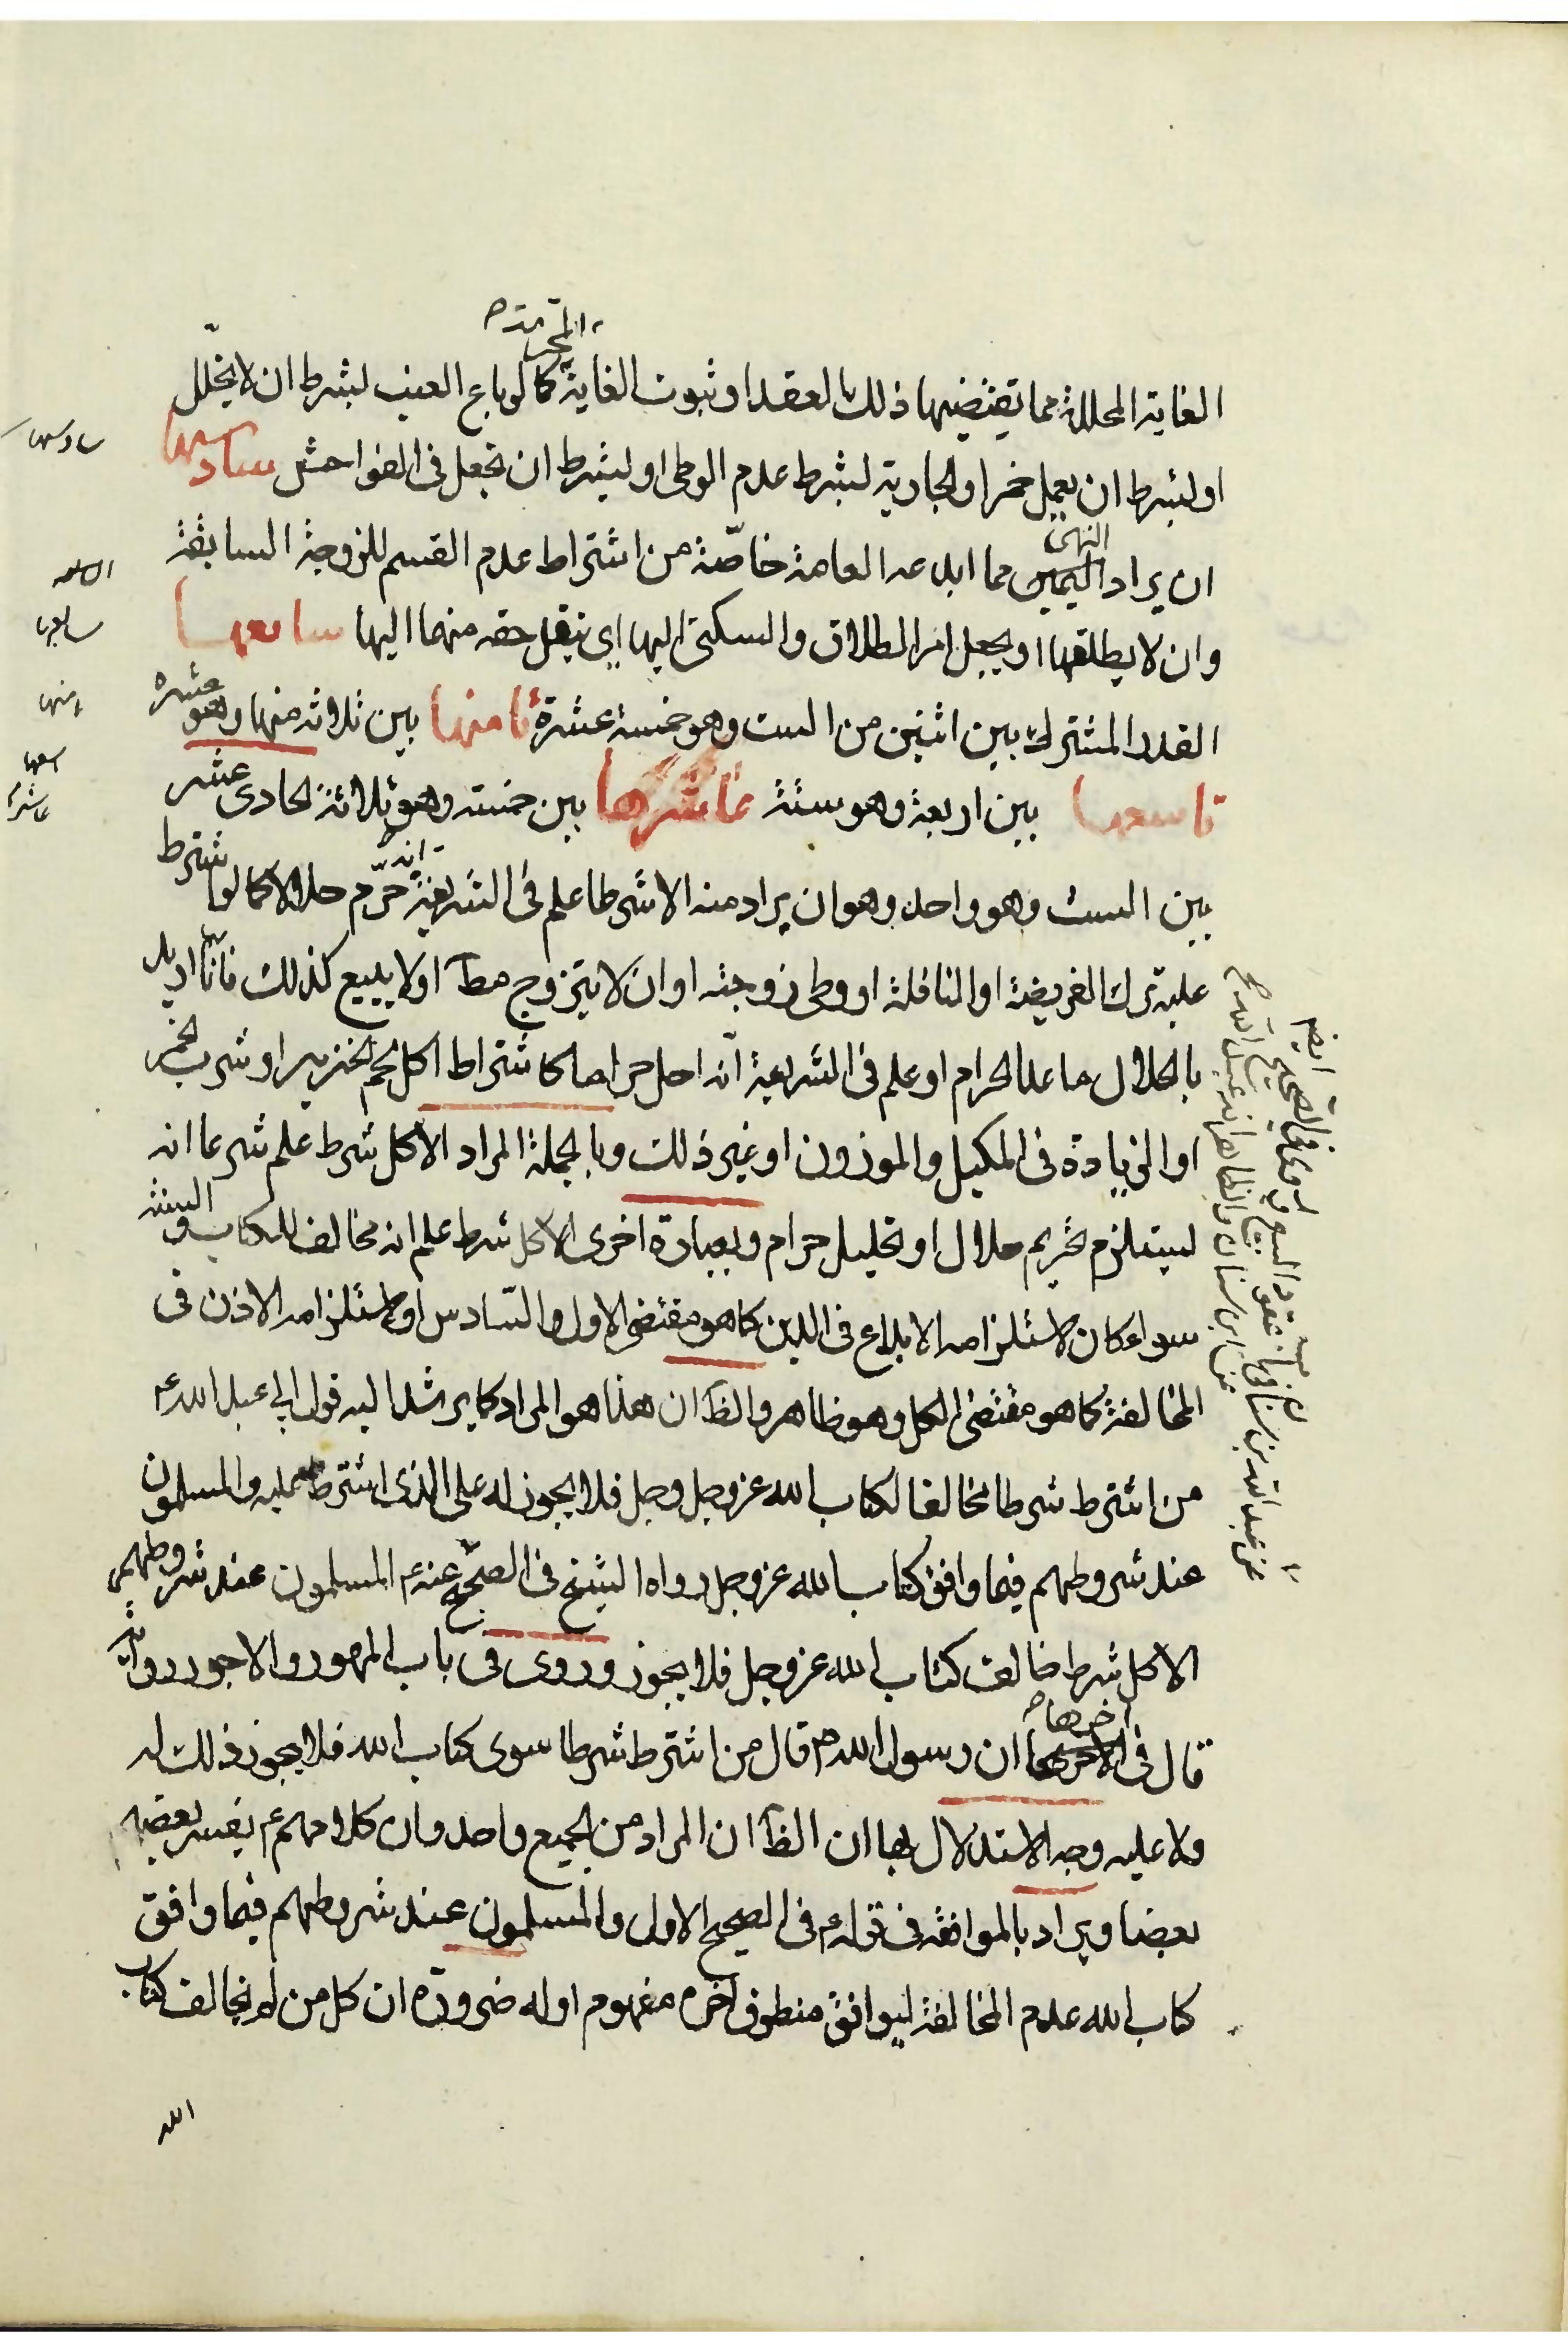 الغاية المحللة مما تقتضيها ذلك بالعقد او ثبوت الغاية المحرمة كما لو باع العنب بشرط ان لا يخلل
او بشرط ان يعمل خمرا والجارية بشرط عدم الوطى او بشرط ان تجعل فى الفواحش سادسها
ان يراد النهى مما ابدعه العامة خاصّة من اشتراط عدم القسم للزوجة السابقة
وان لا يطلقها او يجعل امر الطلاق والسكنى اليها اى ينقل حقه منهما اليها سابعها
القدر المشترك بين اثنين من الست وهو خمسة عشرة ثامنها بين ثلاثه منها وهو عشره
تاسعها بين اربعة وهو ستة عاشرها بين خمسته وهو ثلاثة لحادى عشر
بين الست وهو واحد وهو ان يراد منه الا شرطا علم فى الشريعة انه حرّم حلالا كما لو اشترط
عليه ترك الفريضة او النافلة او وطى زوجته او ان لا يتزوج مطآ او لا يبيع كذلك فانّا اريد
بالحلال ما عدا الحرام او علم فى الشريعة انّه احل حراما كاشتراط اكل لحم الخنزير او شرب الخمر
او الزيادة فى المكيل والموزون او غير ذلك وبالجملة المراد الا كل شرط علم شرعا انه
يستلزم تحريم حلال او تحليل حرام وبعبارة اخرى الا كل شرط علم انه مخالف للكتاب والسنة
سواء كان لاستلزامه الابداع فى الدين كما هو مقتضى الاول والسّادس او لاستلزامه الاذن فى
المخالفة كما هو مقتضى الكل وهو ظاهر والظآ ان هذا هو المراد كما يرشد اليه قول ابى عبد الله ع
من اشترط شرطا مخالفا لكتاب الله عز وجل وجل فلا يجوز له على الذى اشترط عليه والمسلمون
عند شروطهم فيما وافق كتاب الله عز وجل رواه الشيخ فى الصحيح عنه ع المسلمون عند شروطهم
الا كل شرط خالف كتاب الله عز وجل فلا يجوز وروى فى باب المهور والاجور رواية
قال فى اخرها ان رسول الله ص قال من اشترط شرطا سوى كتاب الله فلا يجوز ذلك له
ولا عليه وجه الاستدلال بها ان الظآ ان المراد من الجميع واحد وان كلامهم ع يفسر بعضه
بعضا ويراد بالموافقة فى قوله ع فى الصحيح الاول والمسلمون عند شروطهم فيما وافق
كتاب الله عدم المخالفة ليوافق منطوق اخره مفهوم اوله ضرورة ان كل من لم يخالف كتاب
الله
سادسها
سابعها
ثامنها
تاسعها
عاشرها
عن عبد الله بن سنان
عن ابن سنان والظاهر انه عبد الله